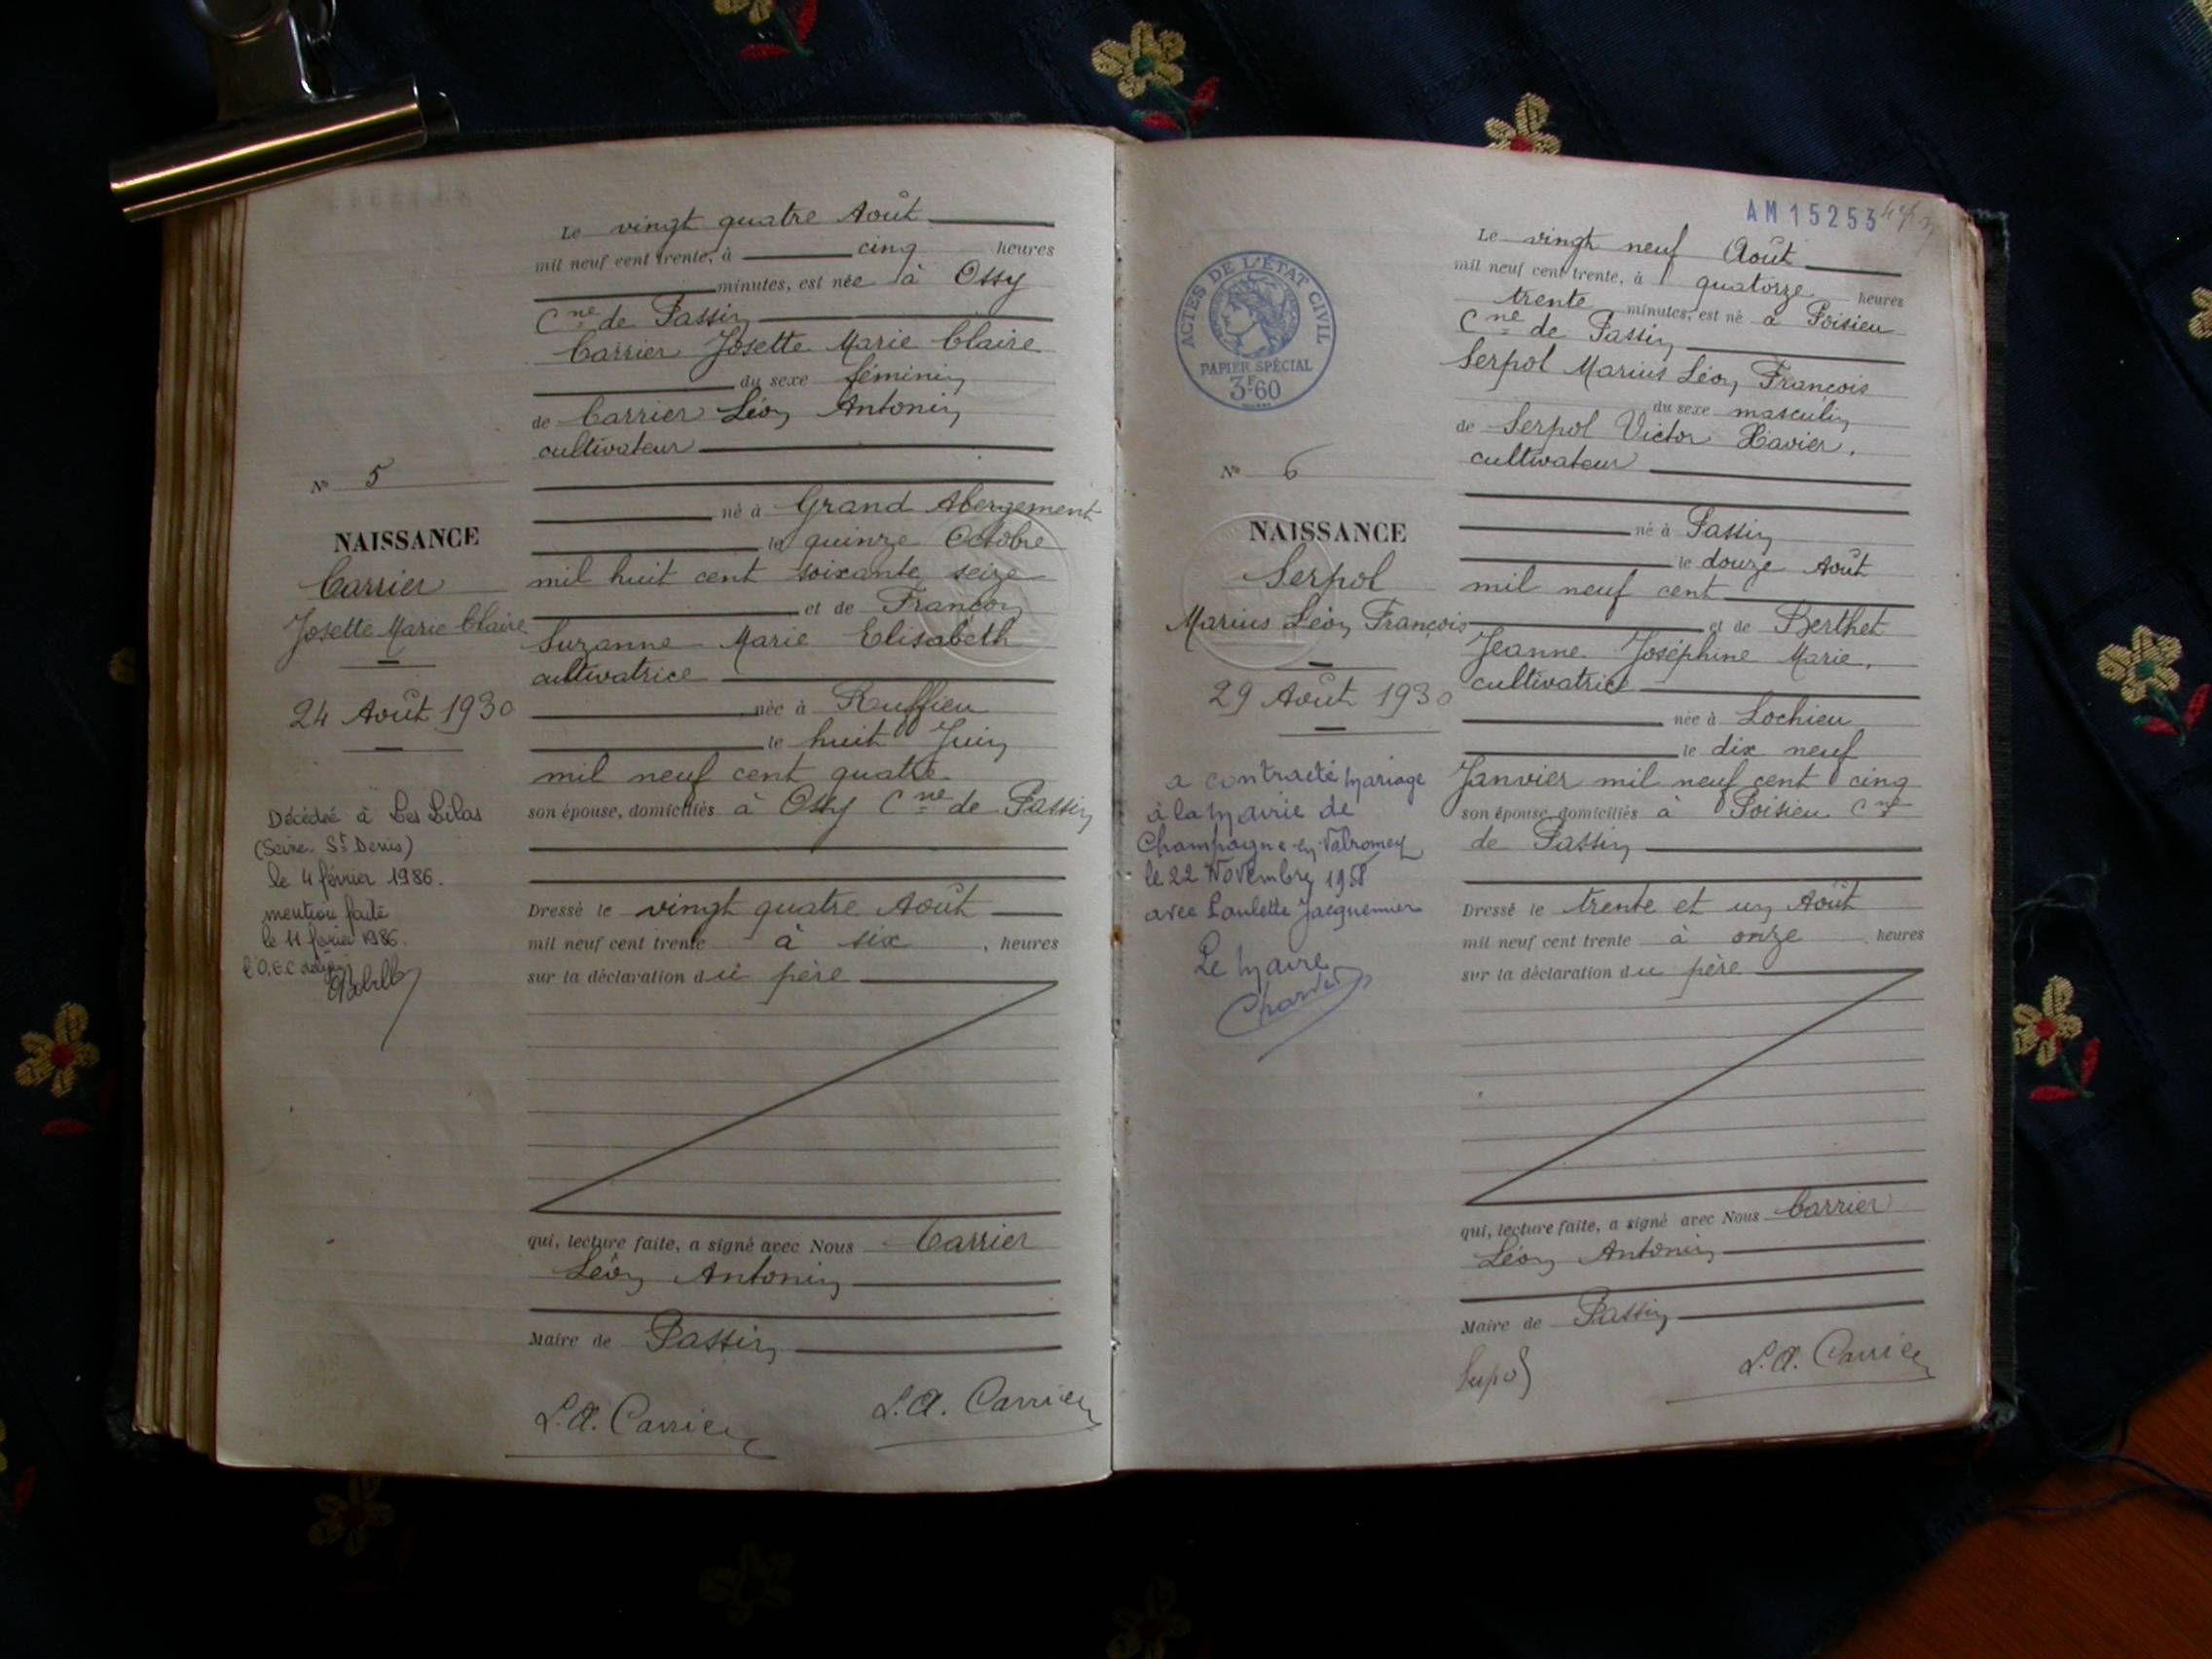 Le vingt quatre Août
mil neuf cent trente, à cinq heures
minutes, est née à Ossy
Cne de Passin
Carrier Josette Marie Claire
du sexe féminin
de Carrier Léon Antonin
cultivateur
né à Grand Abergement
le quinze Octobre
mil huit cent soixante seize
et de Françon
Suzanne Marie Elisabeth
cultivatrice
née à Ruffieu
le huit Juin
mil neuf cent quatre
son épouse, domiciliés à Ossy Cne de Passin
Dressé le vingt quatre Août
mil neuf cent trente à six, heures
sur la déclaration du père
qui, lecture faite, a signé avec Nous Carrier
Léon Antonin
Maire de Passin
L.A. Carrier L.A. Carrier
No 5
NAISSANCE
Carrier
Josette Marie Claire
24 Août 1930
Décédée à Les Lilas
(Seine St Denis)
le 4 février 1986.
mention faite
le 11 février 1986.
l'O.E.C
AM15253
ACTES DE L'ÉTAT CIVIL
PAPIER SPÉCIAL
3F60
Le vingt neuf Août
mil neuf cent trente, à quatorze heures
trente minutes, est né à Poisieu
Cne de Passin
Serpol Marius Léon François
du sexe masculin
de Serpol Victor Xavier,
cultivateur
né à Passin
le douze Août
mil neuf cent
et de Berthet
Jeanne Joséphine Marie,
cultivatrice
née à Lochieu
le dix neuf
Janvier mil neuf cent cinq
son épouse, domiciliés à Poisieu Cne
de Passin
Dressé le trente et un Août
mil neuf cent trente à onze, heures
sur la déclaration du père
qui, lecture faite, a signé avec Nous Carrier
Léon Antonin
Maire de Passin
Serpol L.A. Carrier
No 6
NAISSANCE
Serpol
Marius Léon François
29 Août 1930
a contracté mariage
à la mairie de
Champagne-en-Valromey
le 22 Novembre 1958
avec Paulette Jacquemier
Le Maire